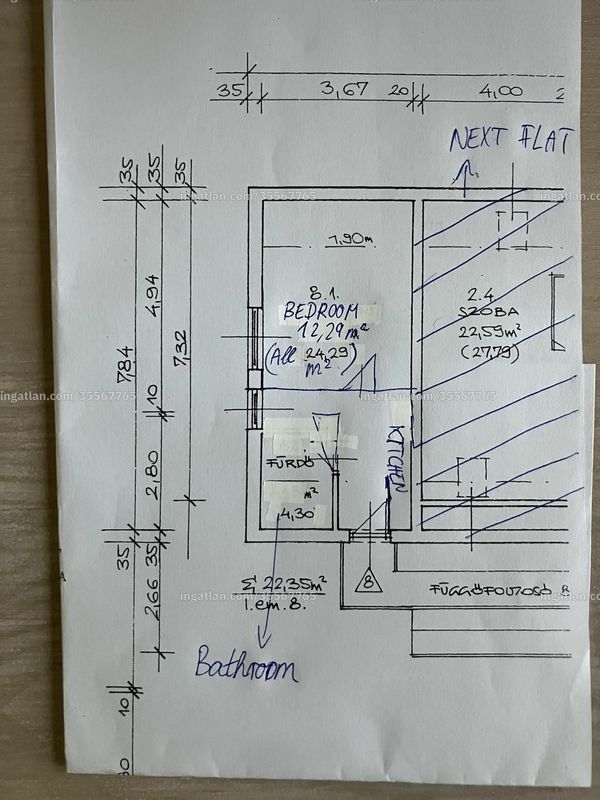 35 3,67 20 4,00 2
NEXT FLAT
35 35 35
ingatlan.com/35567765 ingatlan.com/35567765
1,90m
4,94
8.1.
BEDROOM
12,29 m²
(All 24,29)
m²
2.4
SZOBA
22,59m²
(27,79)
7,84 7,32
10
ingatlan.com/35567765 ingatlan.com/35567765
KITCHEN
2,80
FÜRDŐ
m²
4,30
35 35
2,66
Σ 22,35m²
I.em.8.
8
FÜGGŐFOLYOSÓ
ingatlan.com/35567765 ingatlan.com/35567765
Bathroom
10